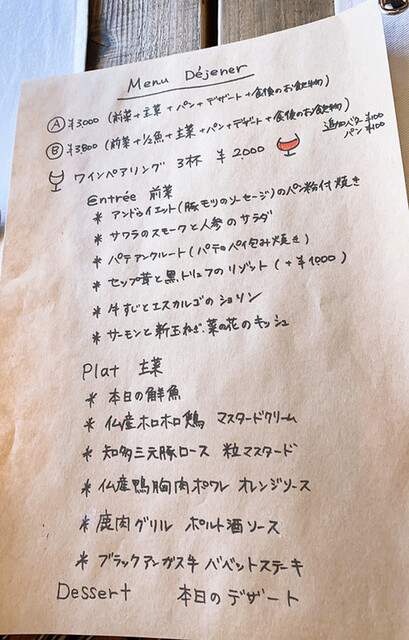 Menu Déjener
Ⓐ ¥3,000 (前菜+主菜+パン+デザート+食後のお飲物)
Ⓑ ¥3,800 (前菜+½魚+主菜+パン+デザート+食後のお飲物)
追加バター¥100
パン ¥100
ワインペアリング 3杯 ¥2,000
Entrée 前菜
* アンドゥイエット(豚モツのソーセージ)のパン粉付焼き
* サワラのスモークと人参のサラダ
* パテアンクルート(パテのパイ包み焼き)
* セップ茸と黒トリュフのリゾット(+¥1,000)
* 牛すじとエスカルゴのショソン
* サーモンと新玉ねぎ、菜の花のキッシュ
Plat 主菜
* 本日の鮮魚
* 仏産ホロホロ鶏 マスタードクリーム
* 知多三元豚ロース 粒マスタード
* 仏産鴨胸肉ポワレ オレンジソース
* 鹿肉グリル ポルト酒ソース
* ブラックアンガス牛 バベットステーキ
Dessert 本日のデザート